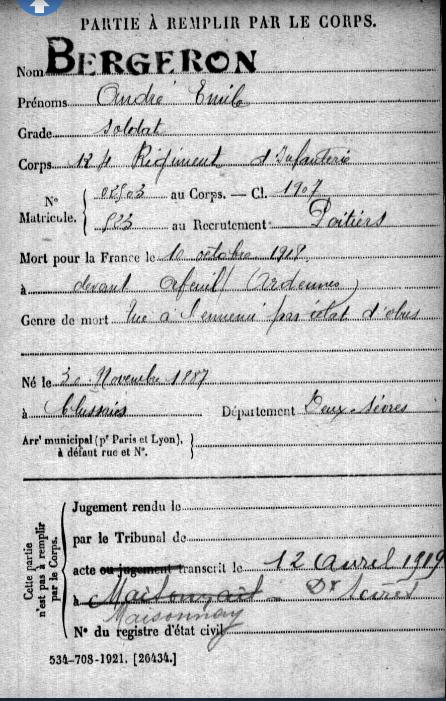 PARTIE À REMPLIR PAR LE CORPS.
Nom BERGERON
Prénoms André Emile
Grade soldat
Corps Régiment d'Infanterie
N° Matricule. 02903 au Corps. — Cl. 1907
au Recrutement Poitiers
Mort pour la France le 10 octobre 1918
à devant (Ardennes)
Genre de mort Tué à l'ennemi par éclat d'obus
Né le 30 Novembre 1887
à Clussais Département Deux-Sèvres
Arr' municipal (p' Paris et Lyon),
à défaut rue et N°.
Cette partie n'est pas à remplir par le Corps.
Jugement rendu le
par le Tribunal de
acte ou jugement transcrit le 12 avril 1919
à Maisonnais Dx Sèvres
Maisonnay
N° du registre d'état civil
534-708-1921. [26434.]